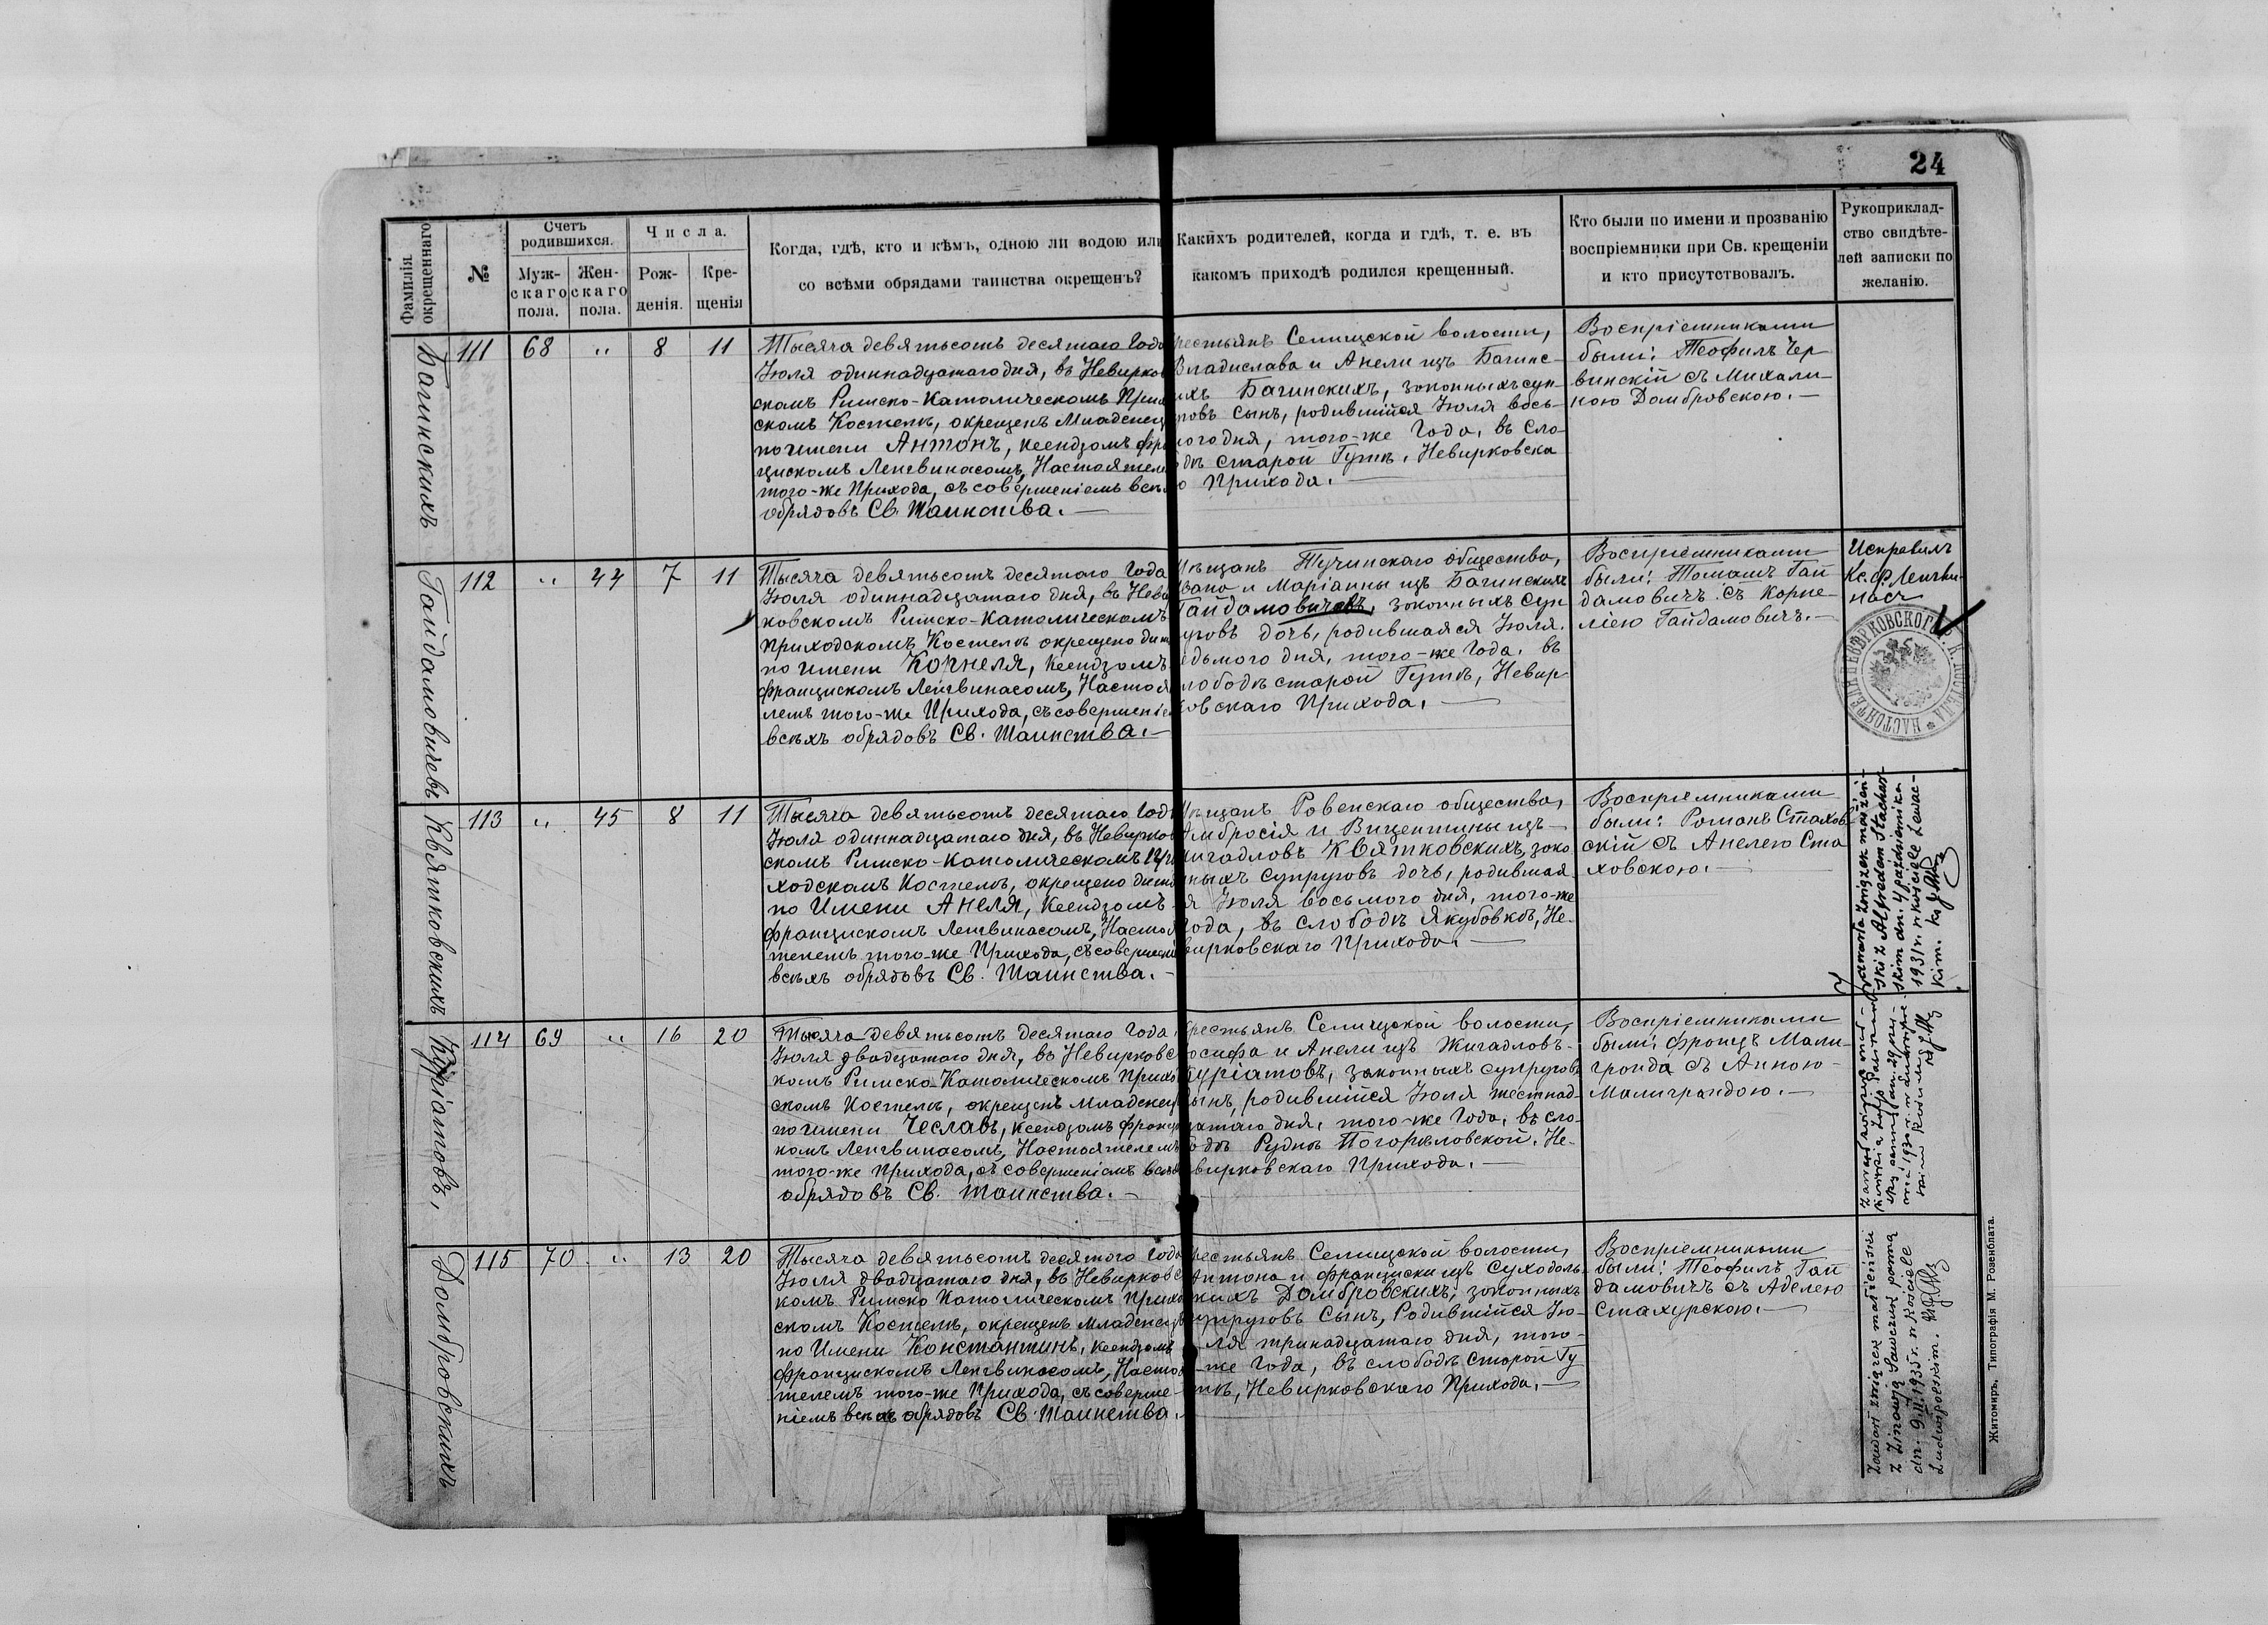 24
Фамилія окрещеннаго
№
Счетъ родившихся.
Муж-
скаго
пола.
Жен-
скаго
пола.
Числа.
Рож-
денія.
Кре-
щенія
Когда, гдѣ, кто и кѣмъ, одною ли водою или
со всѣми обрядами таинства окрещенъ?
Какихъ родителей, когда и гдѣ, т. е. въ
какомъ приходѣ родился крещенный.
Кто были по имени и прозванію
воспріемники при Св. крещеніи
и кто присутствовалъ.
Рукоприклад-
ство свидѣте-
лей записки по
желанію.
Багинскихъ
111 68 " 8 11
Тысяча девятьсотъ десятаго Года
Іюля одиннадцатаго дня, въ Невирков
скомъ Римско-Католическомъ Прих
скомъ Костелѣ, окрещенъ Младенец
по имени Антонъ, Ксендзомъ Фра
цискомъ Ленгвинасомъ, Настоятеле
того-же Прихода, съ совершеніемъ всѣ
обрядовъ Св. Таинства.—
рестьянъ Селищской волости,
Владислава и Анели изъ Багинс-
ихъ Багинскихъ, законныхъ суп-
говъ сынъ, родившійся Іюля вось-
мого дня, того-же Года, въ Сло-
дѣ старой Гутѣ, Невирковска
о Прихода.—
Воспріемниками
были: Теофилъ Чер
винскій съ Михали-
ною Домбровскою.—
Гайдамовичевъ
112 " 44 7 11
Тысяча девятьсотъ десятаго Года
Іюля одиннадцатаго дня, въ Неви
ковскомъ Римско-Католическомъ
Приходскомъ Костелѣ окрещено дит
по имени Корнеля, Ксендзомъ
Францискомъ Ленгвинасомъ, Настоя
лемъ того-же Прихода, съ совершеніе
всѣхъ обрядовъ Св. Таинства.—
мѣщанъ Тучинскаго общества,
вана и Маріанны изъ Багинскихъ
Гайдамовичевъ, законныхъ Суп
уговъ дочь, родившаяся Іюля
едьмого дня, того-же Года, въ
лободѣ старой Гутѣ, Невир-
ковскаго Прихода.—
Воспріемниками
были: Томашъ Гай
дамовичъ съ Корне-
ліею Гайдамовичъ.—
Исправилъ
Кс. Ф. Ленгви-
насъ
Квятковскихъ
113 " 45 8 11
Тысяча девятьсотъ десятаго Год
Іюля одиннадцатаго дня, въ Невирков
скомъ Римско-Католическомъ При
ходскомъ Костелѣ, окрещено дит
по Имени Анеля, Ксендзомъ
Францискомъ Ленгвинасомъ, Настоя
телемъ того-же Прихода, съ совершені
всѣхъ обрядовъ Св. Таинства.—
мѣщанъ Ровенскаго общества,
Амбросія и Викентины изъ
жигадловъ Квятковскихъ, зако
нныхъ супруговъ дочь, родившая
я Іюля восьмого дня, того-же
Года, въ слободѣ Якубовкѣ, Не-
вирковскаго Прихода.—
Воспріемниками
были: Романъ Стахов
скій съ Анелею Ста
ховскою.—
zawarła związek małżeń-
ski z Alfredem Stachow-
skim dn. 4 października
1931 r. w kościele Lewac-
kim. ks.
Куріатовъ,
114 69 " 16 20
Тысяча девятьсотъ десятаго Года
Іюля двадцатаго дня, въ Невирковс
комъ Римско-Католическомъ Прихо
скомъ Костелѣ, окрещенъ Младенец
по имени Чеславъ, ксендзомъ Франц
комъ Ленгвинасомъ, Настоятелемъ
того-же Прихода, съ совершеніемъ всѣх
обрядовъ Св. Таинства.—
крестьянъ Селищской волости,
осифа и Анели изъ Жигадловъ-
Куріатовъ, законныхъ супругов
сынъ, родившійся Іюля шестнад-
цатаго дня, того-же Года, въ сло-
бодѣ Руднѣ Погорѣловской, Не-
вирковскаго Прихода.—
Воспріемниками
были: Францъ Мали-
гранда съ Анною
Малиграндою.—
Домбровскихъ
115 70 " 13 20
Тысяча девятьсотъ десятого Года
Іюля двадцатаго дня, въ Невирковс
комъ Римско Католическомъ Прихо
скомъ Костелѣ, окрещенъ Младенец
по Имени Константинъ, ксендзомъ
Францискомъ Ленгвинасомъ, Настоя
телемъ того-же Прихода, съ соверше-
ніемъ всѣхъ обрядовъ Св. Таинства.
рестьянъ Селищской волости,
Антона и Франциски изъ Суходоль-
кихъ Домбровскихъ, законныхъ
супруговъ Сынъ, Родившійся Ію-
ля тринадцатаго дня, того-
-же Года, въ слободѣ Старой Гу
тѣ, Невирковскаго Прихода.—
Воспріемниками
были: Теофилъ Гай
дамовичъ съ Аделею
Стахурскою.—
Zawarł związek małżeński
z Zinowją Sawczuk panną
dn. 9.II.1935 r. w kościele
Ludwipolskim.
Житомиръ, Типографія М. Розенблата.